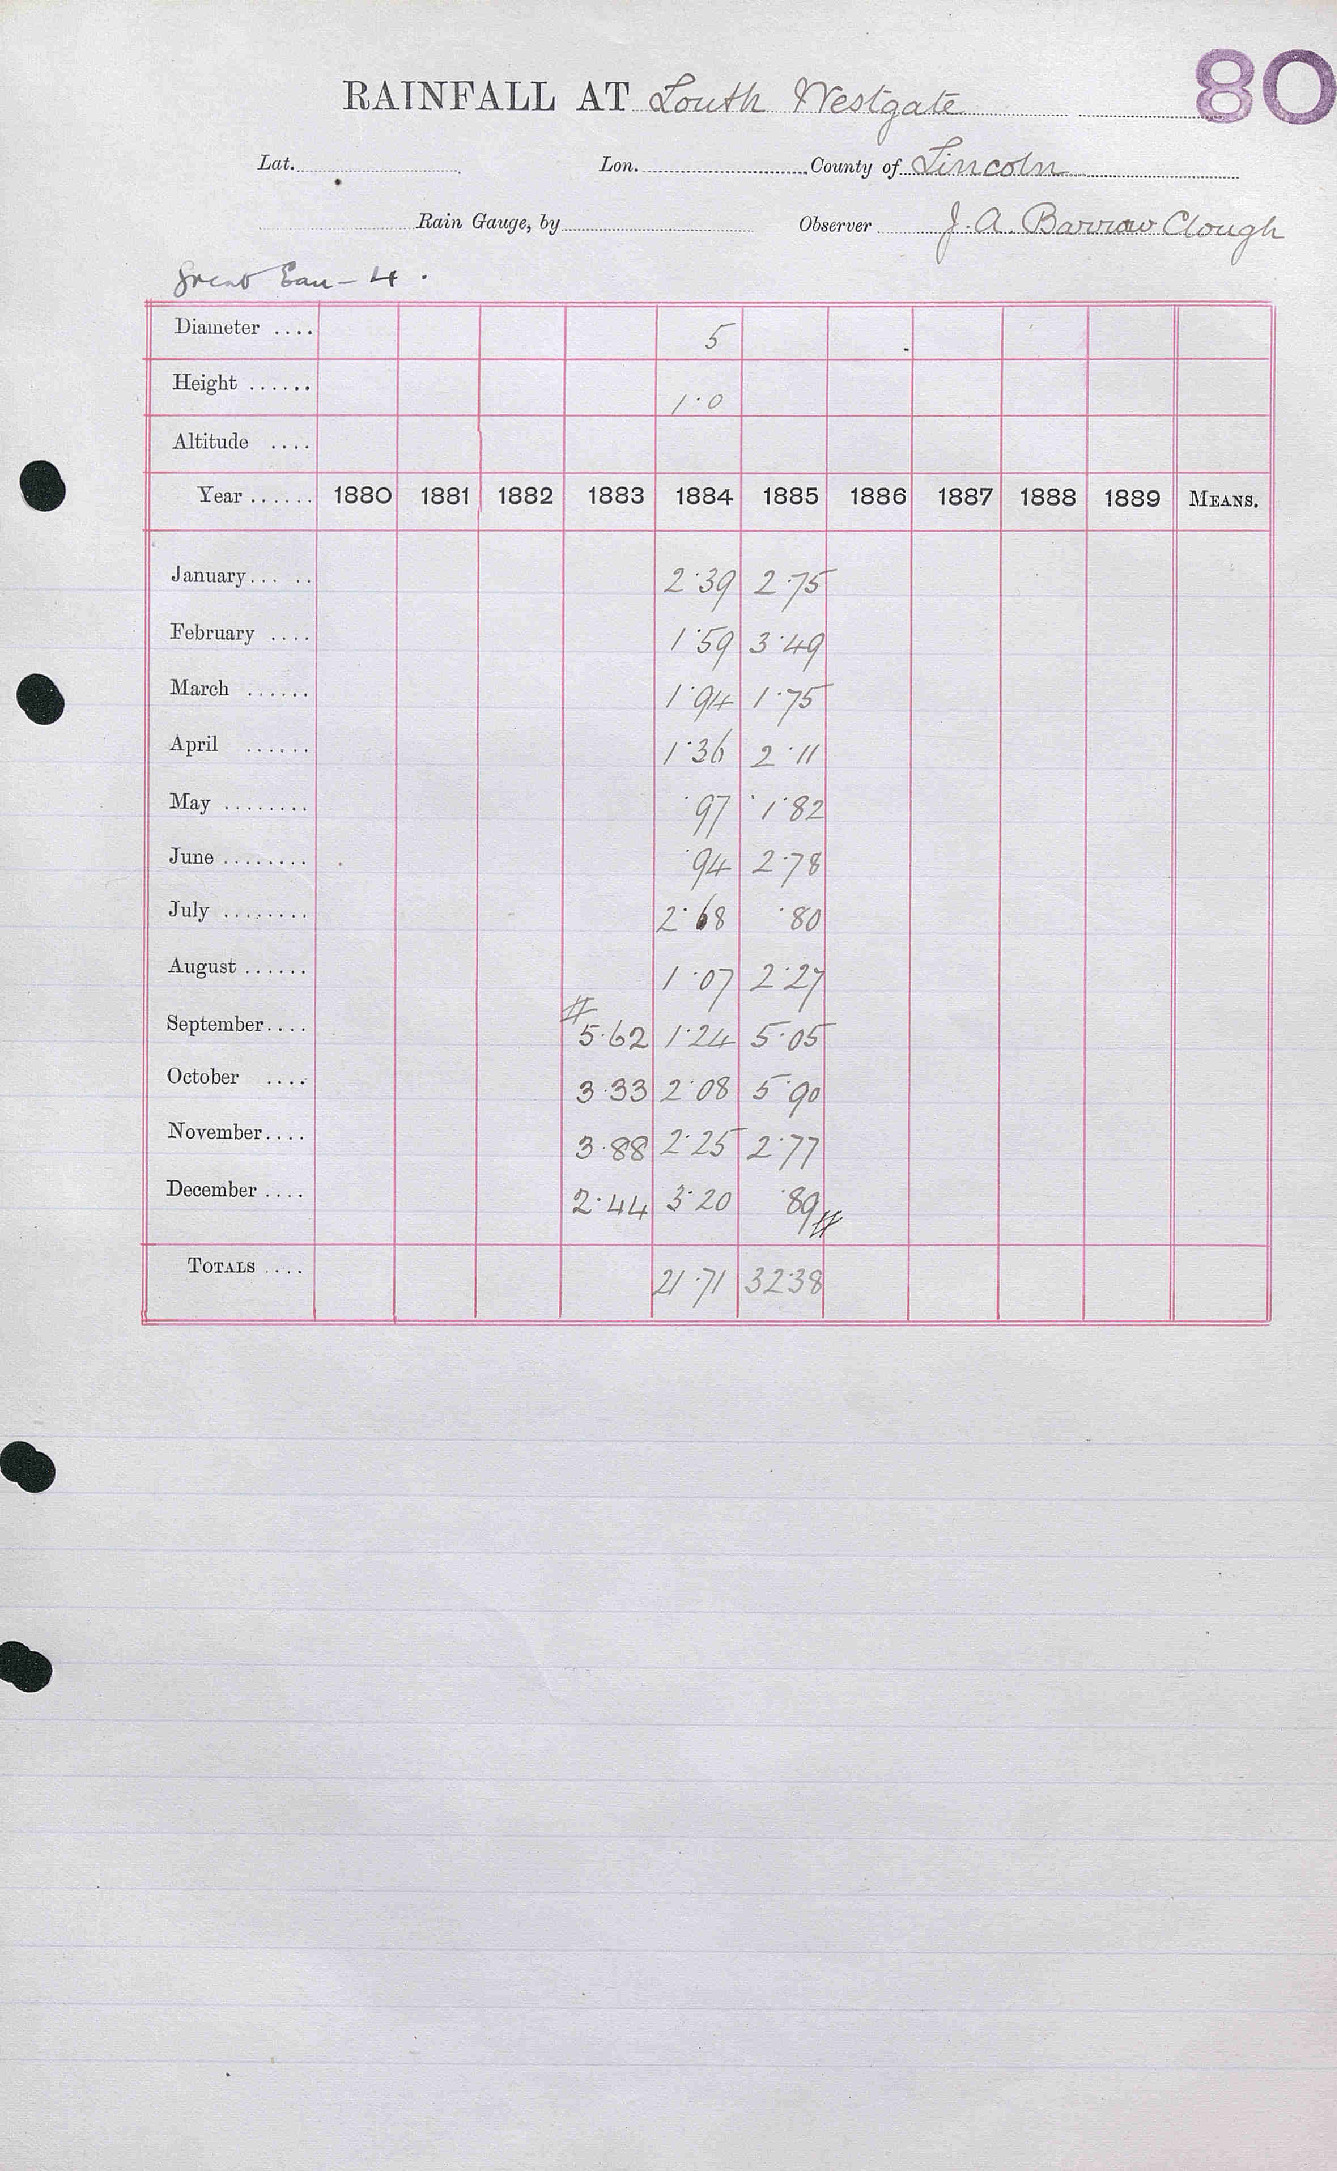 80
RAINFALL AT Louth Westgate
Lat. Lon. County of Lincoln
Rain Gauge, by Observer J. A. Barrow Clough
Great Eau - 4.
Diameter .... 5
Height ...... 1·0
Altitude ....
Year ...... 1880 1881 1882 1883 1884 1885 1886 1887 1888 1889 MEANS.
January... .. 2·39 2·75
February .... 1·59 3·49
March ...... 1·94 1·75
April ...... 1·36 2·11
May ........ ·97 1·82
June ........ ·94 2·78
July ........ 2·68 ·80
August ...... 1·07 2·27
September.... # 5·62 1·24 5·05
October .... 3·33 2·08 5·90
November.... 3·88 2·25 2·77
December .... 2·44 3·20 ·89 #
TOTALS .... 21·71 32·38